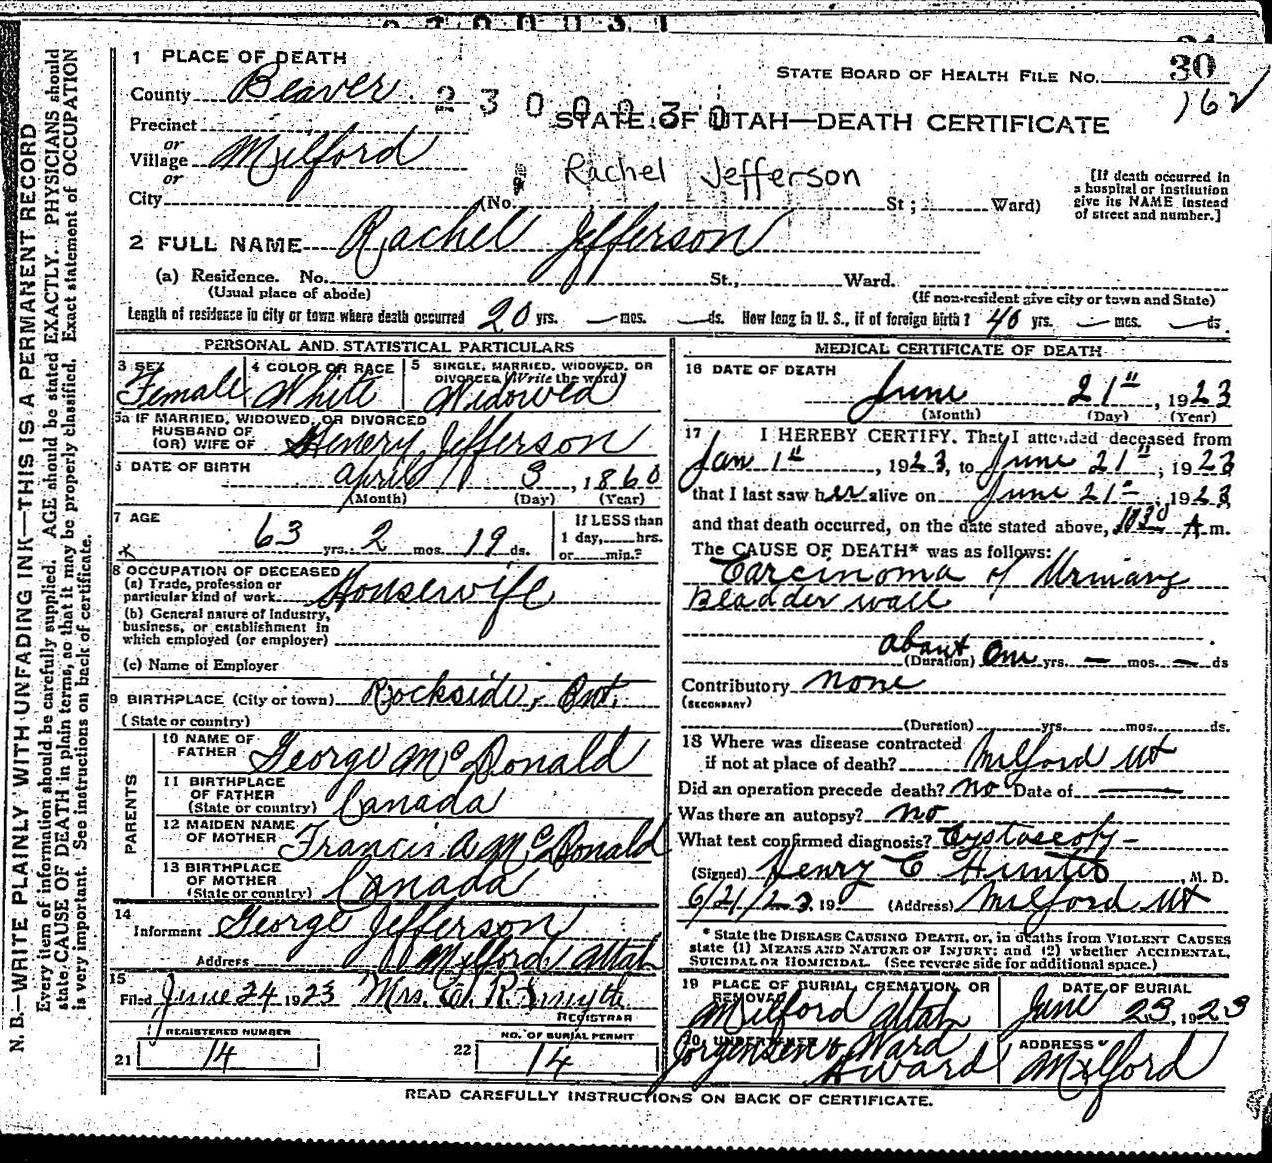 1 PLACE OF DEATH
STATE BOARD OF HEALTH FILE NO. 30
162
County Beaver
2300030
STATE OF UTAH—DEATH CERTIFICATE
Precinct
or
Village Milford
or
Rachel Jefferson
City (No. St; Ward)
[If death occurred in
a hospital or institution
give its NAME instead
of street and number.]
2 FULL NAME Rachel Jefferson
(a) Residence. No. St., Ward.
(Usual place of abode)
(If non-resident give city or town and State)
Length of residence in city or town where death occurred 20 yrs. — mos. — ds. How long in U. S., if of foreign birth? 40 yrs. — mos. — ds.
PERSONAL AND STATISTICAL PARTICULARS
3 SEX Female
4 COLOR OR RACE White
5 SINGLE, MARRIED, WIDOWED, OR
DIVORCED (Write the word)
Widowed
5a IF MARRIED, WIDOWED, OR DIVORCED
HUSBAND OF
(OR) WIFE OF Henery Jefferson
6 DATE OF BIRTH April 3, 1860
(Month) (Day) (Year)
7 AGE 63 yrs. 2 mos. 19 ds.
If LESS than
1 day, hrs.
or min.?
8 OCCUPATION OF DECEASED
(a) Trade, profession or
particular kind of work Housewife
(b) General nature of Industry,
business, or establishment in
which employed (or employer)
(c) Name of Employer
9 BIRTHPLACE (City or town) Rockside, Ont.
(State or country)
PARENTS
10 NAME OF
FATHER George McDonald
11 BIRTHPLACE
OF FATHER
(State or country) Canada
12 MAIDEN NAME
OF MOTHER Francis A McDonald
13 BIRTHPLACE
OF MOTHER
(State or country) Canada
14
Informant George Jefferson
Address Milford Utah
15
Filed June 24 1923 Mrs. E. R. Smyth
REGISTRAR
REGISTERED NUMBER
21 14
NO. OF BURIAL PERMIT
22 14
MEDICAL CERTIFICATE OF DEATH
16 DATE OF DEATH
June 21", 1923
(Month) (Day) (Year)
17 I HEREBY CERTIFY, That I attended deceased from
Jan 1st, 1923, to June 21", 1923
that I last saw her alive on June 21", 1923
and that death occurred, on the date stated above, 1030 A m.
The CAUSE OF DEATH* was as follows:
Carcinoma of Urinary
Bladder wall
about
(Duration) One yrs. — mos. — ds
Contributory none
(SECONDARY)
(Duration) yrs. mos. ds.
18 Where was disease contracted
if not at place of death? Milford Ut
Did an operation precede death? no Date of —
Was there an autopsy? no
What test confirmed diagnosis? Cystoscopy -
(Signed) Henry C Hunter, M. D.
6/21/23. 19 (Address) Milford Ut
* State the DISEASE CAUSING DEATH, or, in deaths from VIOLENT CAUSES
state (1) MEANS AND NATURE OF INJURY; and (2) whether ACCIDENTAL,
SUICIDAL OR HOMICIDAL. (See reverse side for additional space.)
19 PLACE OF BURIAL, CREMATION, OR
REMOVAL
Milford Utah
DATE OF BURIAL
June 23, 1923
20 UNDERTAKER
Jorgensen & Ward
A Ward
ADDRESS
Milford
READ CAREFULLY INSTRUCTIONS ON BACK OF CERTIFICATE.
N. B.—WRITE PLAINLY WITH UNFADING INK—THIS IS A PERMANENT RECORD
Every item of information should be carefully supplied. AGE should be stated EXACTLY. PHYSICIANS should
state CAUSE OF DEATH in plain terms, so that it may be properly classified. Exact statement of OCCUPATION
is very important. See instructions on back of certificate.